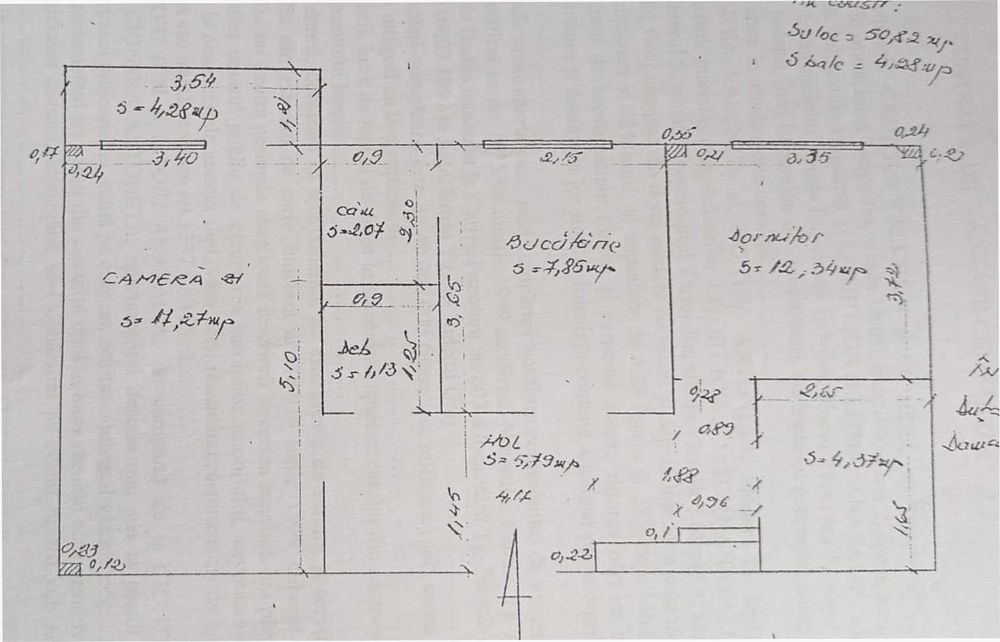 Suloc = 50,82 mp
S balc = 4,28 mp
3,54
S = 4,28 mp
1,21
0,17
0,24
3,40
0,9
2,15
0,55
0,21
3,35
0,24
0,23
Căm
S=2,07
2,30
Bucătărie
S = 7,85 mp
Dormitor
S = 12,34 mp
3,72
CAMERĂ
S = 17,27 mp
0,9
3,65
Deb
S = 1,13
1,25
5,10
0,28
0,89
2,65
HOL
S = 5,79 mp
4,17
1,45
1,88
0,96
0,1
0,22
S = 4,37 mp
1,65
0,23
0,12